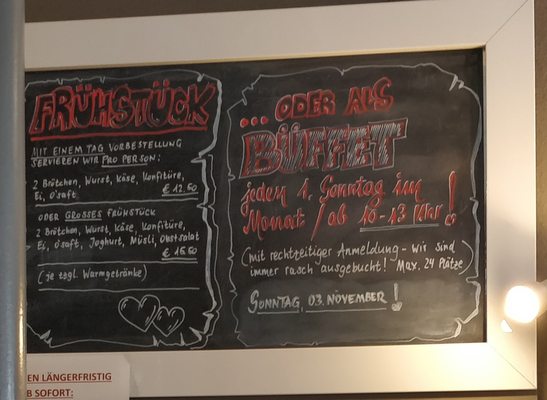 FRÜHSTÜCK
MIT EINEM TAG VORBESTELLUNG
SERVIEREN WIR PRO PERSON:
2 Brötchen, Wurst, Käse, Konfitüre,
Ei, O'saft
€ 12.50
ODER GROSSES FRÜHSTÜCK
2 Brötchen, Wurst, Käse, Konfitüre,
Ei, O'saft, Joghurt, Müsli, Obstsalat
€ 16.50
(je zzgl. Warmgetränke)
... ODER ALS
BÜFFET
jeden 1. Sonntag im
Monat / ab 10-13 Uhr!
(mit rechtzeitiger Anmeldung - wir sind
immer rasch ausgebucht! Max. 24 Plätze)
SONNTAG, 03. NOVEMBER!
EN LÄNGERFRISTIG
B SOFORT: